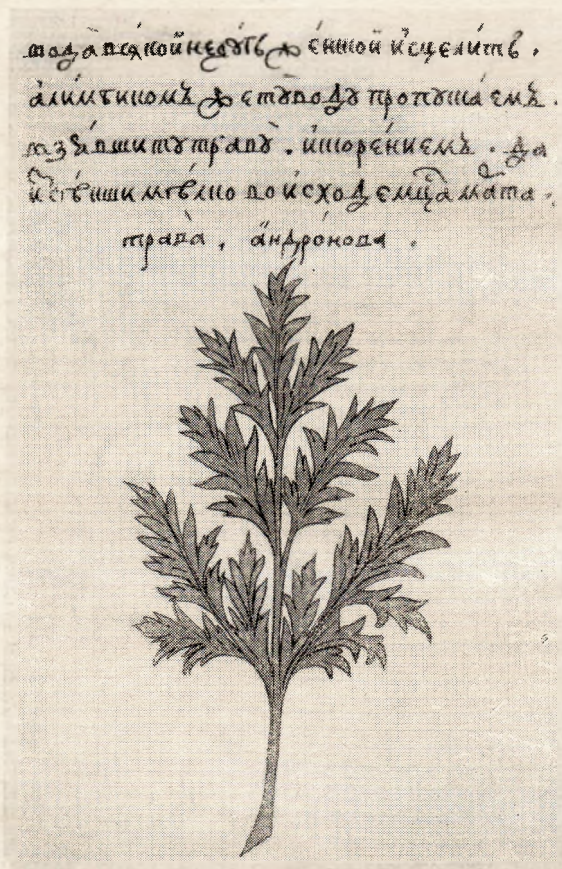 вода всѧ́кой недугъ же́нской и҆сцели́тъ .
а҆ли́мбикомъ же ту̀ воду пропуща́емъ .
взѧ́вши ту̀ траву̀ . и҆корениемъ . да
и҆сѣ́кши мѣ́лко во исходе мц҃а маиа .
трава̀ , а҆ндро́нова .